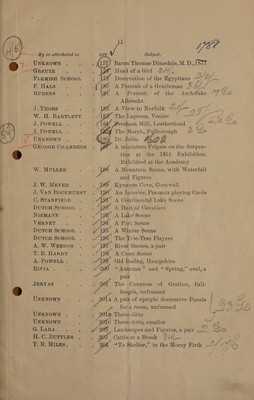 11
By or attributed to Lot Subject.
UNKNOWN . . 177 Baron Thomas Dimsdale, M.D., 1777
GREUZE . . 178 Head of a Girl
FLEMISH SCHOOL 179 Destruction of the Egyptians
F. HALS . . 180 A Portrait of a Gentleman
RUBENS . . 181 A Portrait of the Archduke
Albrecht
J. THORS . . 182 A View in Norfolk
W. H. BARTLETT 183 The Lagoons, Venice
J. POWELL . . 184 Fetcham Mill, Leatherhead
J. POWELL . . 185 The Marsh, Pulborough
UNKNOWN . . 186 Dr. Jollie
GEORGE CHAMBERS 187 A miniature Frigate on the Serpen-
tine at the 1851 Exhibition.
Exhibited at the Academy
W. MULLER . . 188 A Mountain Scene, with Waterfall
and Figures
J. W. MEYER . . 189 Kynance Cove, Cornwall
J. VAN BOUCKURST 190 An Interior, Peasants playing Cards
C. STANFIELD . . 191 A Continental Lake Scene
DUTCH SCHOOL . 192 A Halt of Cavaliers
NIEMANN . . 193 A Lake Scene
VERNET . . 194 A Port Scene
DUTCH SCHOOL . 195 A Winter Scene
DUTCH SCHOOL . 196 The Tric-Trac Players
A. W. WEEDON . 197 River Scenes, a pair
T. B. HARDY . . 198 A Coast Scene
A. POWELL . . 199 Old Basing, Hampshire
RIVIA . . 200 "Autumn" and "Spring," oval, a
pair
JERVAS . . 201 The Countess of Grafton, full-
length, unframed
UNKNOWN . . 201A A pair of upright decorative Panels
for a room, unframed
UNKNOWN . . 201B Three ditto
UNKNOWN . . 201C Three ditto, smaller
G. LARA . . 202 Landscapes and Figures, a pair
H. C. BUTTLER . . 203 Cattle at a Brook
T. R. MILES . . 204 "To Shelter," in the Moray Firth